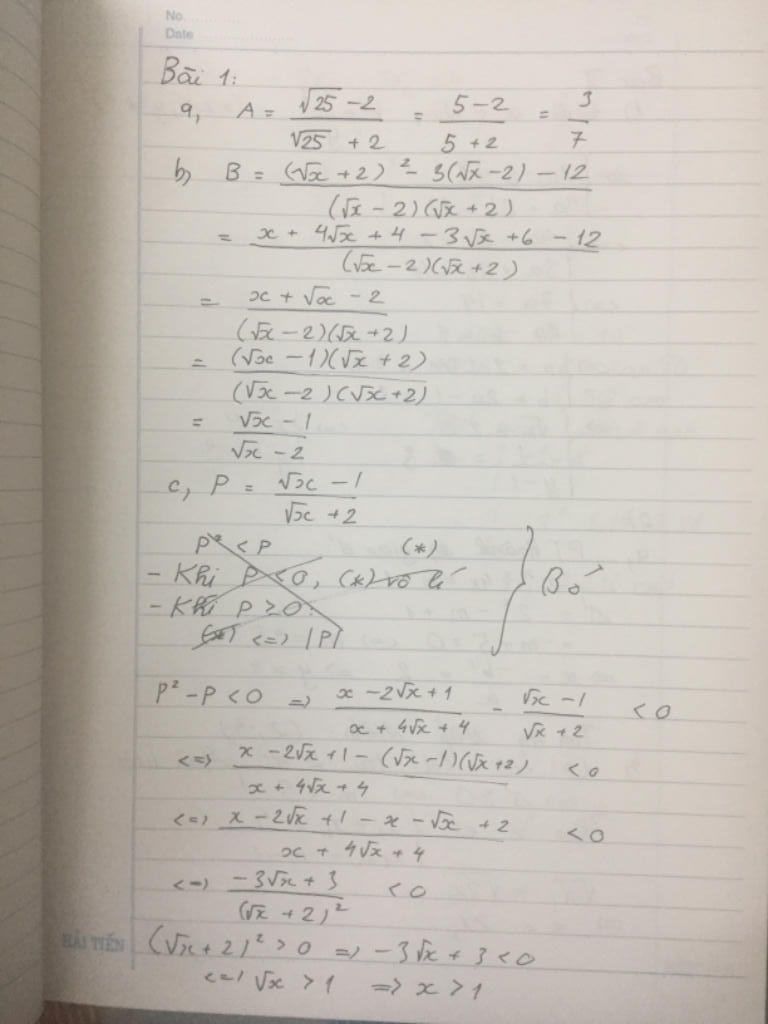 No.
Date
Bài 1:
a, A = (√25 - 2)/(√25 + 2) = (5 - 2)/(5 + 2) = 3/7
b, B = ((√x + 2)² - 3(√x - 2) - 12)/((√x - 2)(√x + 2))
= (x + 4√x + 4 - 3√x + 6 - 12)/((√x - 2)(√x + 2))
= (x + √x - 2)/((√x - 2)(√x + 2))
= ((√x - 1)(√x + 2))/((√x - 2)(√x + 2))
= (√x - 1)/(√x - 2)
c, P = (√x - 1)/(√x + 2)
P² < P (*)
- Khi P < 0, (*) vô lí
- Khi P ≥ 0:
(*) <=> |P|
Bỏ
P² - P < 0 => (x - 2√x + 1)/(x + 4√x + 4) - (√x - 1)/(√x + 2) < 0
<=> (x - 2√x + 1 - (√x - 1)(√x + 2))/(x + 4√x + 4) < 0
<=> (x - 2√x + 1 - x - √x + 2)/(x + 4√x + 4) < 0
<=> (-3√x + 3)/(√x + 2)² < 0
(√x + 2)² > 0 => -3√x + 3 < 0
<=> √x > 1 => x > 1
HẢI TIẾN